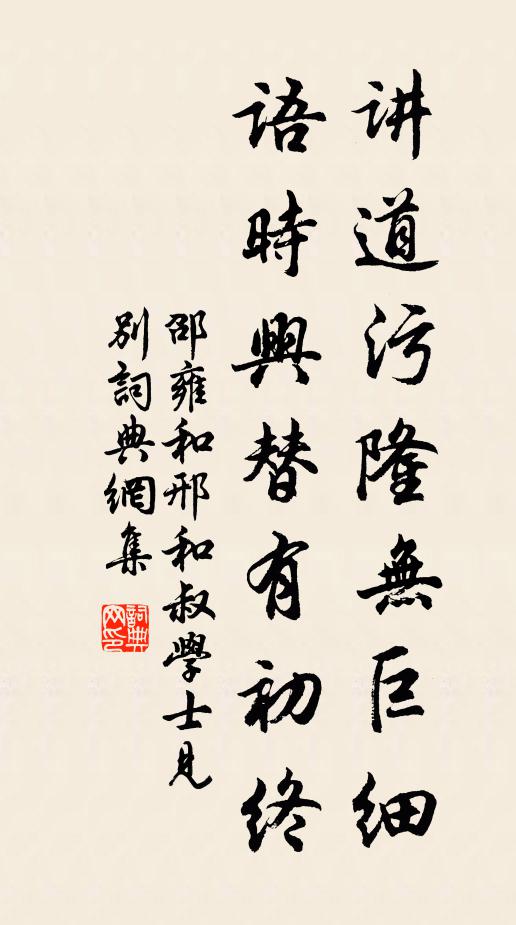 讲道污隆無巨細
語時興替有初終
邵雍和邢和叔學士見
別詞典網集
詞典网印